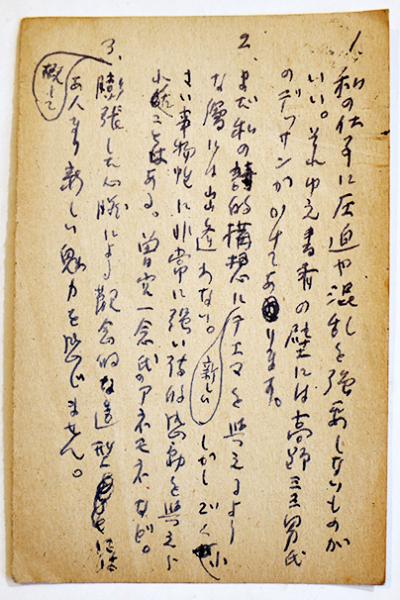 1. 私の仕事に圧迫や混乱を強要しないものが
いい。それゆえ書斎の壁には高野三三男氏
のデッサンがかけてあります。
2. まだ私の詩的構想にテエマを与えるよう
な層には出逢わない。新しい しかしごく小
さい事物性に非常に強い詩的感動を与えら
れたことはある。曽宮一念氏のアネモネなど。
3. 膨張した心臓による観念的な造型
あんまり新しい魅力を感じません。
概して